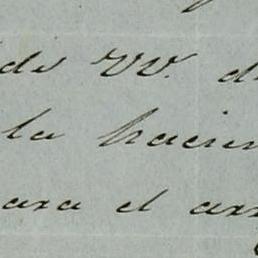 de VV. d
la hacien
ara el arr